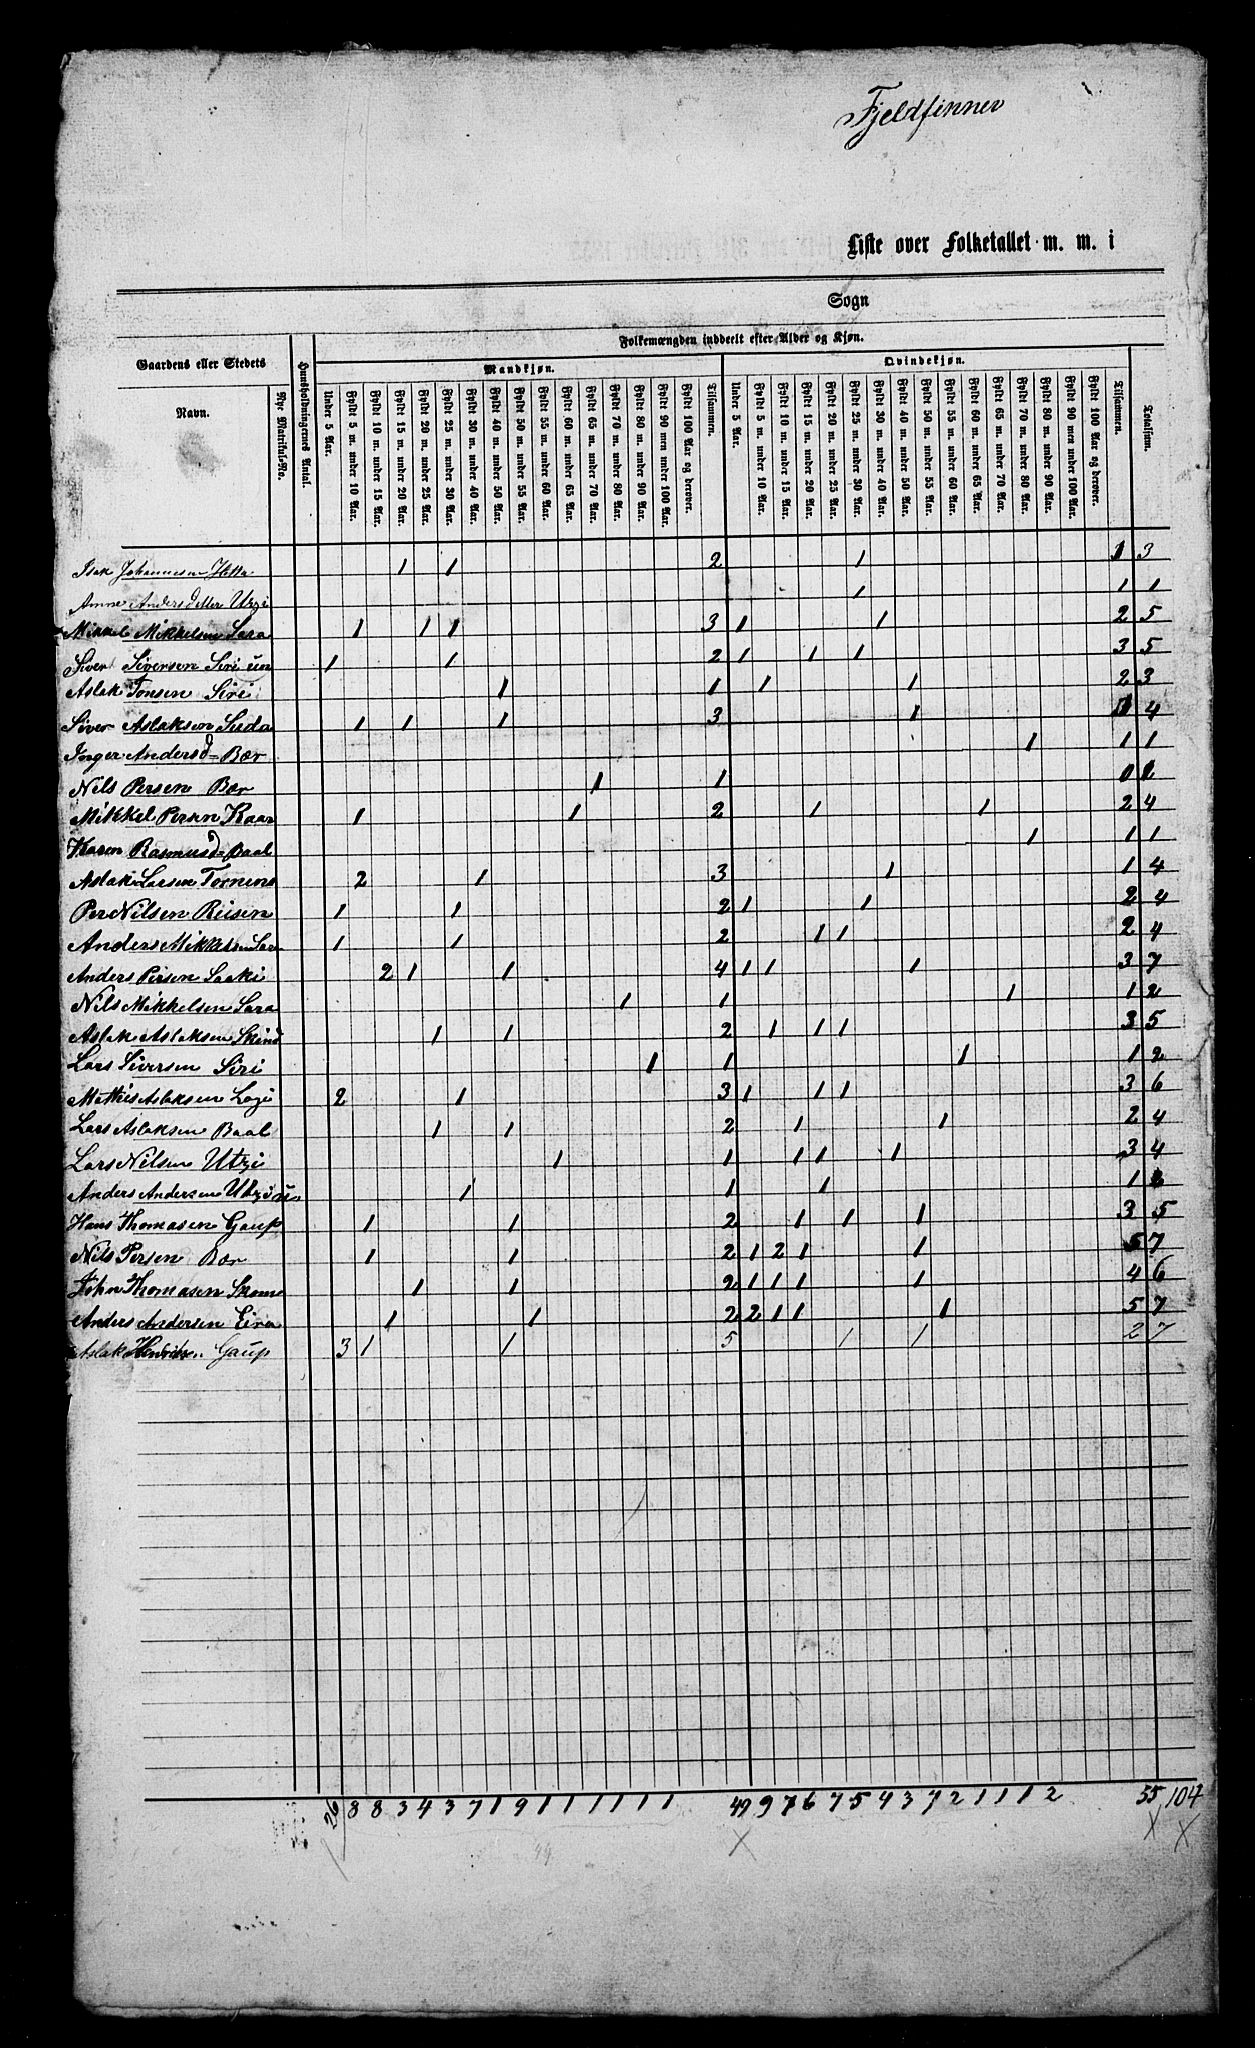 Fjeldfinner
Liste over Folketallet m. m. i
Sogn
Folkemængden inddeelt efter Alder og Kjøn.
Gaardens eller Stedets
Huusholdningernes Antal.
Mandkjøn.
Qvindekjøn.
Totalsum.
Navn.
Nye Matrikul-No.
Under 5 Aar.
Fyldt 5 m. under 10 Aar.
Fyldt 10 m. under 15 Aar.
Fyldt 15 m. under 20 Aar.
Fyldt 20 m. under 25 Aar.
Fyldt 25 m. under 30 Aar.
Fyldt 30 m. under 40 Aar.
Fyldt 40 m. under 50 Aar.
Fyldt 50 m. under 55 Aar.
Fyldt 55 m. under 60 Aar.
Fyldt 60 m. under 65 Aar.
Fyldt 65 m. under 70 Aar.
Fyldt 70 m. under 80 Aar.
Fyldt 80 m. under 90 Aar.
Fyldt 90 men under 100 Aar.
Fyldt 100 Aar og derover.
Tilsammen.
Under 5 Aar.
Fyldt 5 m. under 10 Aar.
Fyldt 10 m. under 15 Aar.
Fyldt 15 m. under 20 Aar.
Fyldt 20 m. under 25 Aar.
Fyldt 25 m. under 30 Aar.
Fyldt 30 m. under 40 Aar.
Fyldt 40 m. under 50 Aar.
Fyldt 50 m. under 55 Aar.
Fyldt 55 m. under 60 Aar.
Fyldt 60 m. under 65 Aar.
Fyldt 65 m. under 70 Aar.
Fyldt 70 m. under 80 Aar.
Fyldt 80 m. under 90 Aar.
Fyldt 90 men under 100 Aar.
Fyldt 100 Aar og derover.
Tilsammen.
Isak Johannesen Hetta 1 1 2 1 1 3
Anne Andersdatter Utzi 1 1 1
Mikkel Mikkelsen Sara 1 1 1 3 1 1 2 5
Siver Siversen Siri 1 1 2 1 1 1 3 5
Aslak Jonsen Siri 1 1 1 1 2 3
Siver Aslaksen 1 1 1 3 1 4
Inger Andersd Bær 1 1 1
Nils Persen Bær 1 1 0
Mikkel Persen 1 1 2 1 1 2 4
Karen Rasmusd Baal 1 1 1
Aslak Larsen 2 1 3 1 1 4
Per Nilsen Reisen 1 1 2 1 1 2 4
Anders Mikkelsen 1 1 2 1 1 2 4
Anders Persen 2 1 1 4 1 1 1 3 7
Nils Mikkelsen Sara 1 1 1 1 2
Aslak Aslaksen 1 1 2 1 1 1 3 5
Lars Siversen Siri 1 1 1 1 2
Mathis Aslaksen 2 1 3 1 1 1 3 6
Lars Aslaksen Baal 1 1 2 1 1 2 4
Lars Nilsen Utzi 1 1 1 1 1 3 4
Anders Andersen Utzi 1 1 1 1 2
Hans Thomasen Gaup 1 1 2 1 1 1 3 5
Nils Persen Bær 1 1 2 1 2 1 1 5 7
John Thomasen 1 1 2 1 1 1 1 4 6
Anders Andersen Eira 1 1 2 2 1 1 1 5 7
Aslak Henriksen Gaup 3 1 1 5 1 1 2 7
26 8 8 3 4 3 7 1 9 1 1 1 1 1 1 49 9 7 6 7 5 4 3 7 2 1 1 1 2 55 104